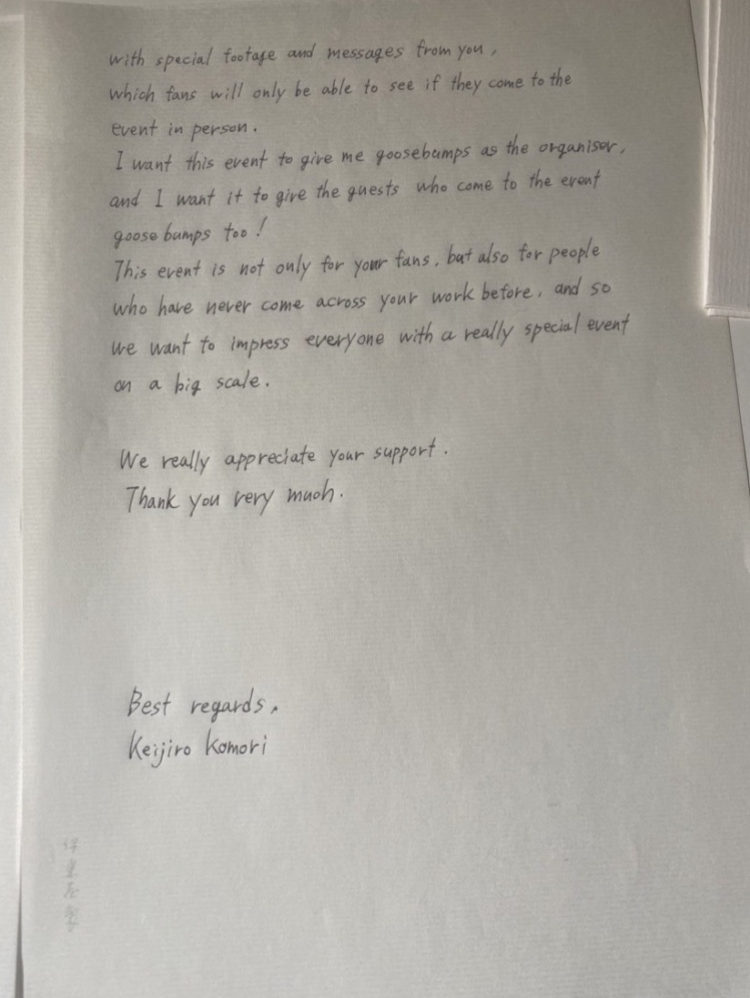 with special footage and messages from you,
which fans will only be able to see if they come to the
event in person.
I want this event to give me goosebumps as the organiser,
and I want it to give the guests who come to the event
goosebumps too!
This event is not only for your fans, but also for people
who have never come across your work before, and so
we want to impress everyone with a really special event
on a big scale.
We really appreciate your support.
Thank you very much.
Best regards,
Keijiro Komori